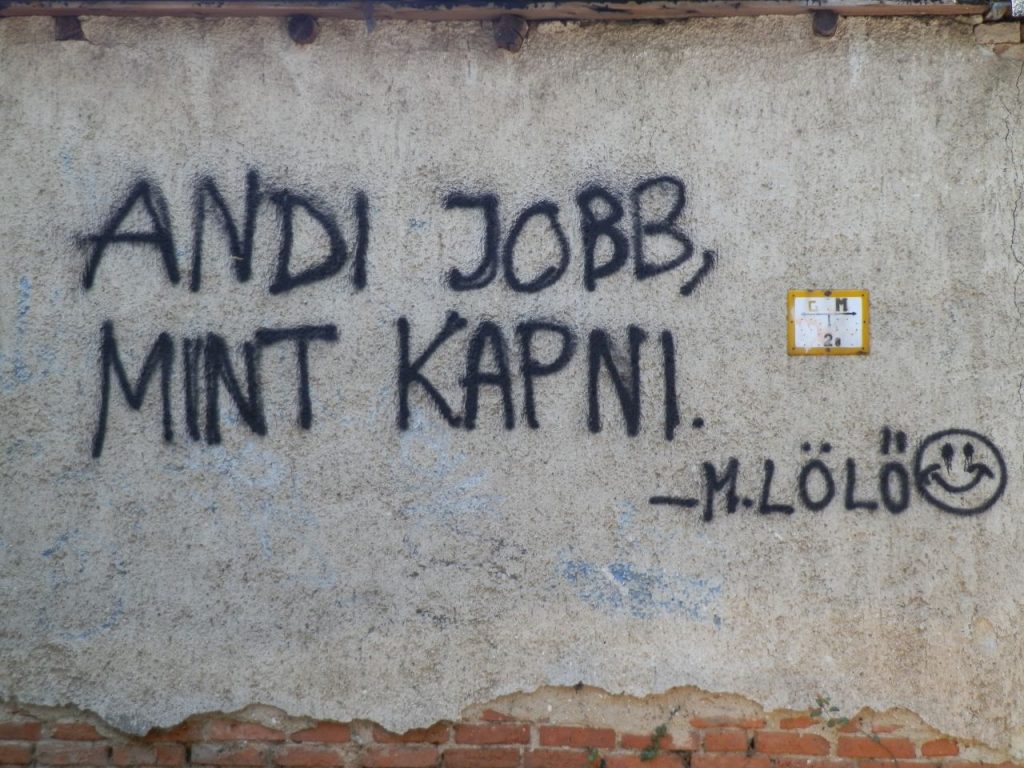 ANDI JOBB,
MINT KAPNI.
G M
2
–M.LÖLÖ